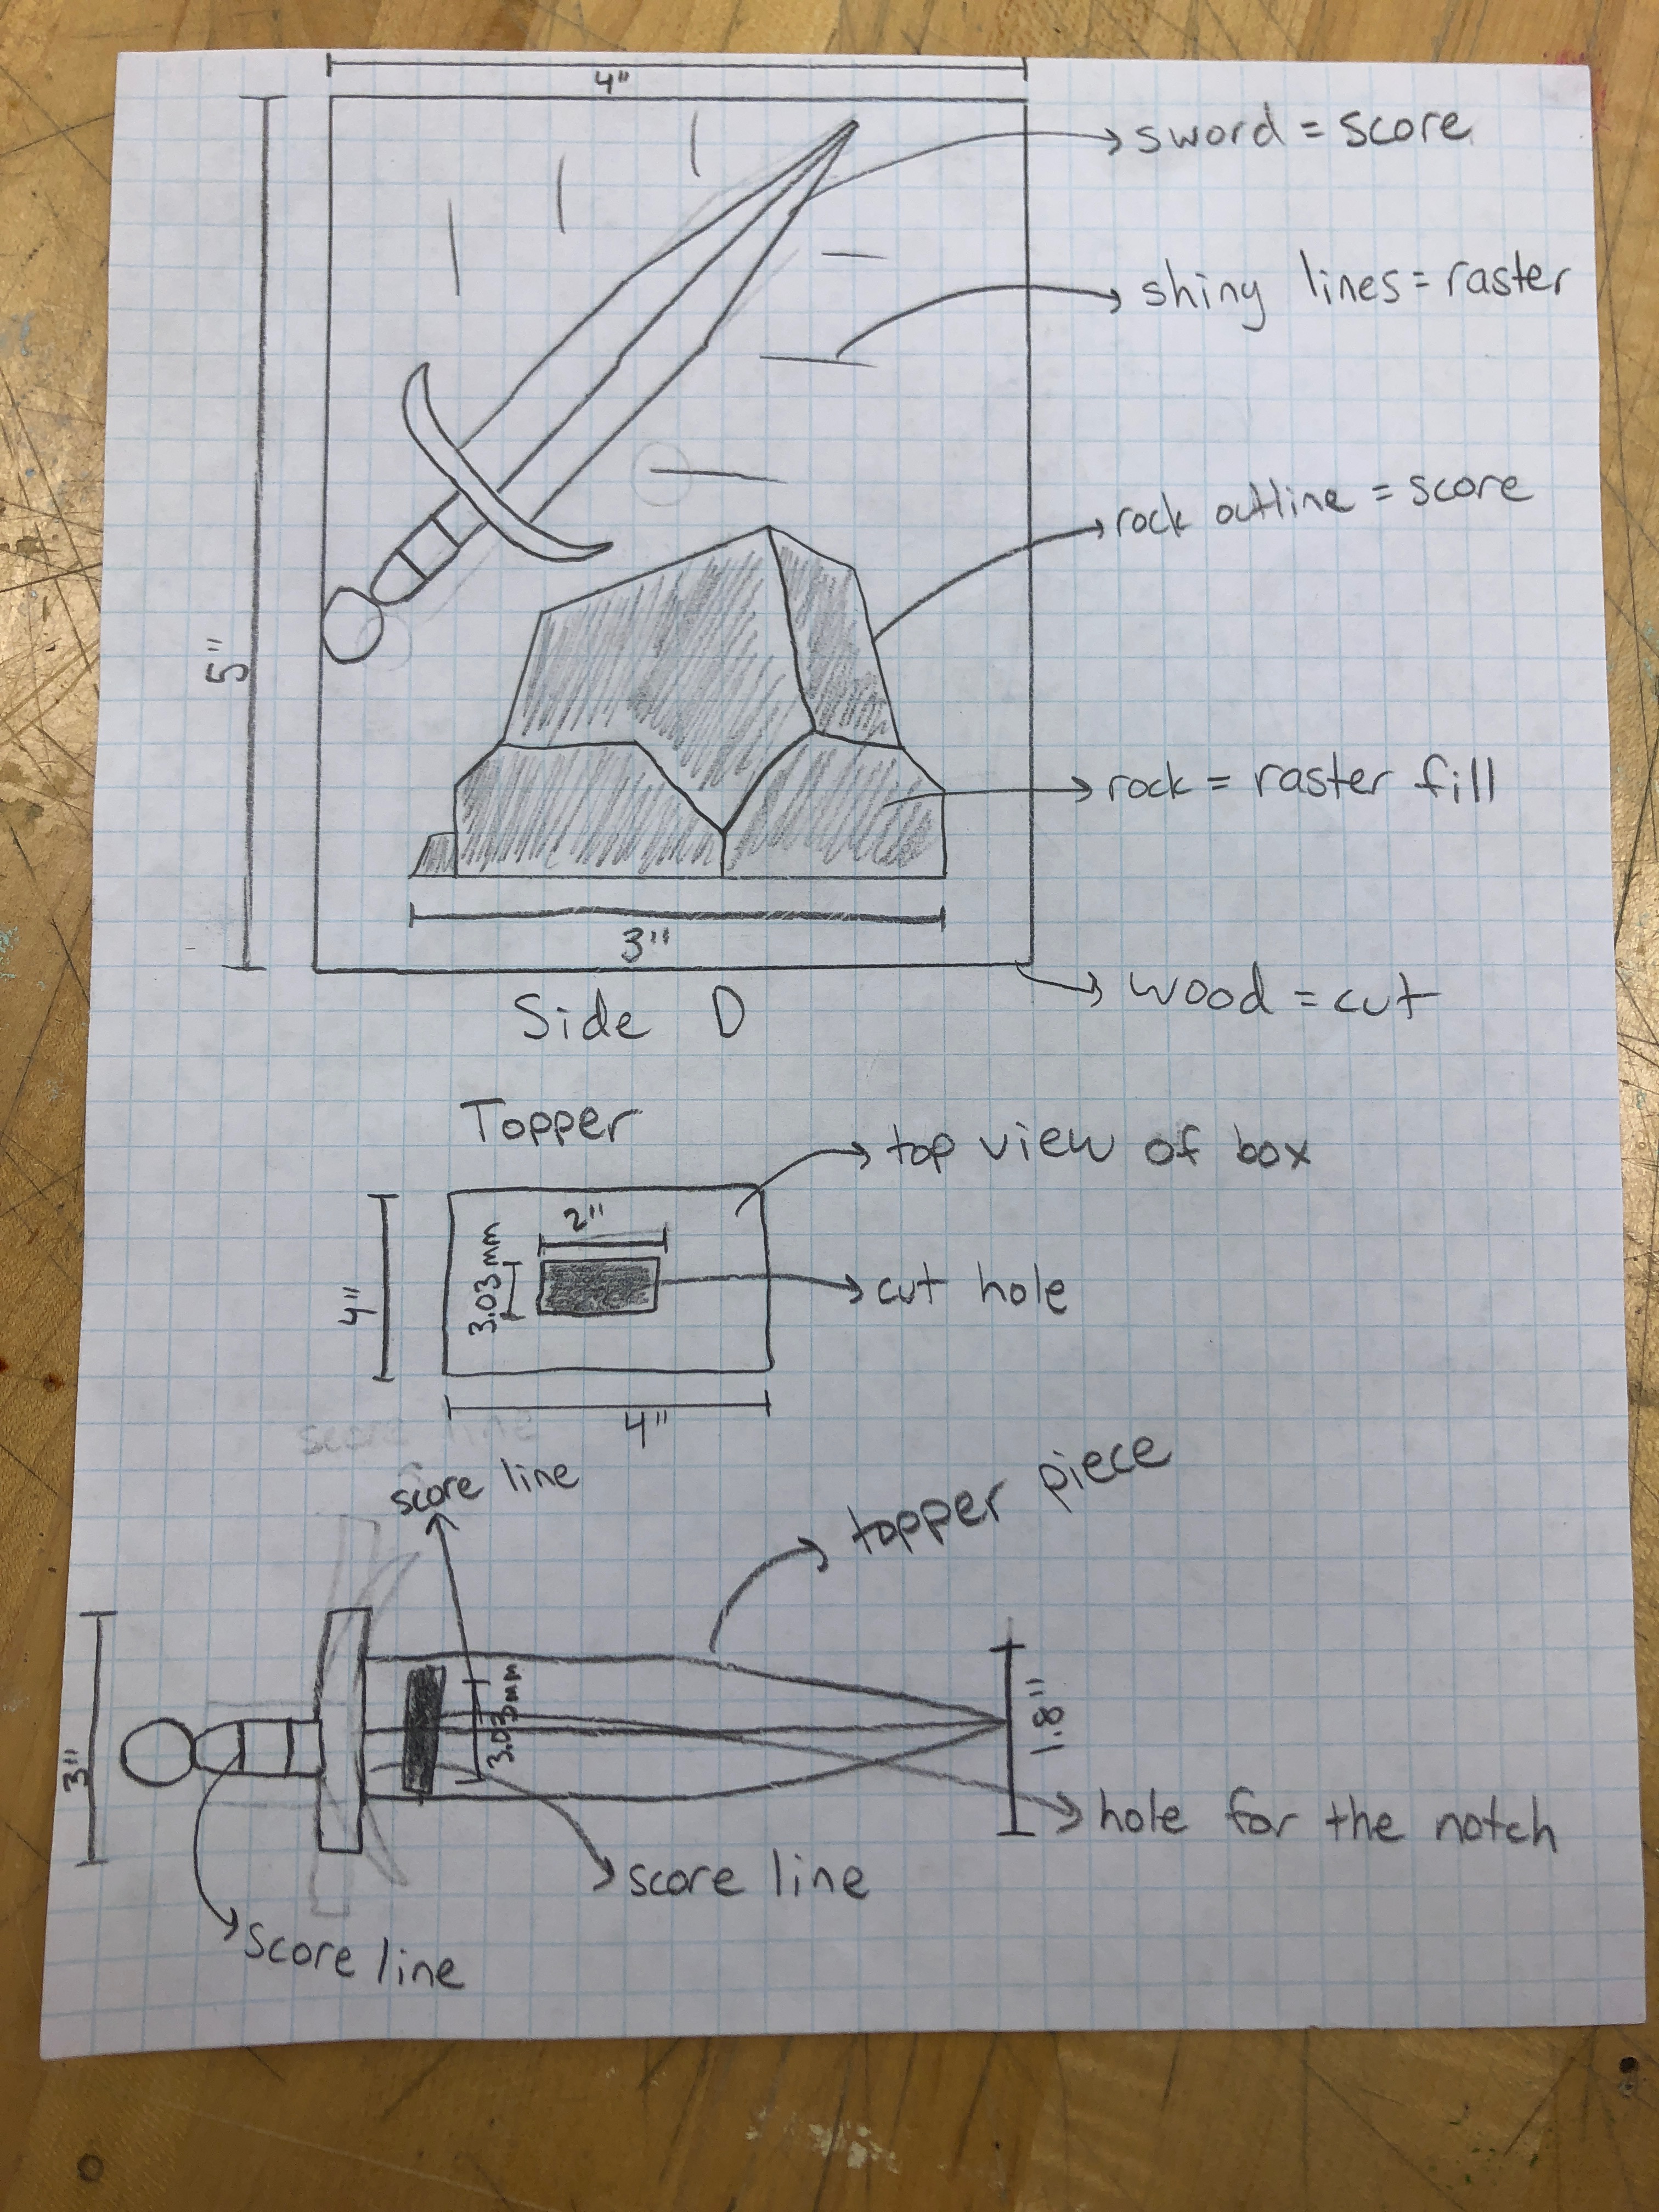 4"
sword = score
shiny lines = raster
rock outline = score
5"
rock = raster fill
3"
wood = cut
Side D
Topper
top view of box
2"
3.03 mm
4"
cut hole
4"
score line
topper piece
3"
3.03 mm
1.8"
hole for the notch
score line
score line